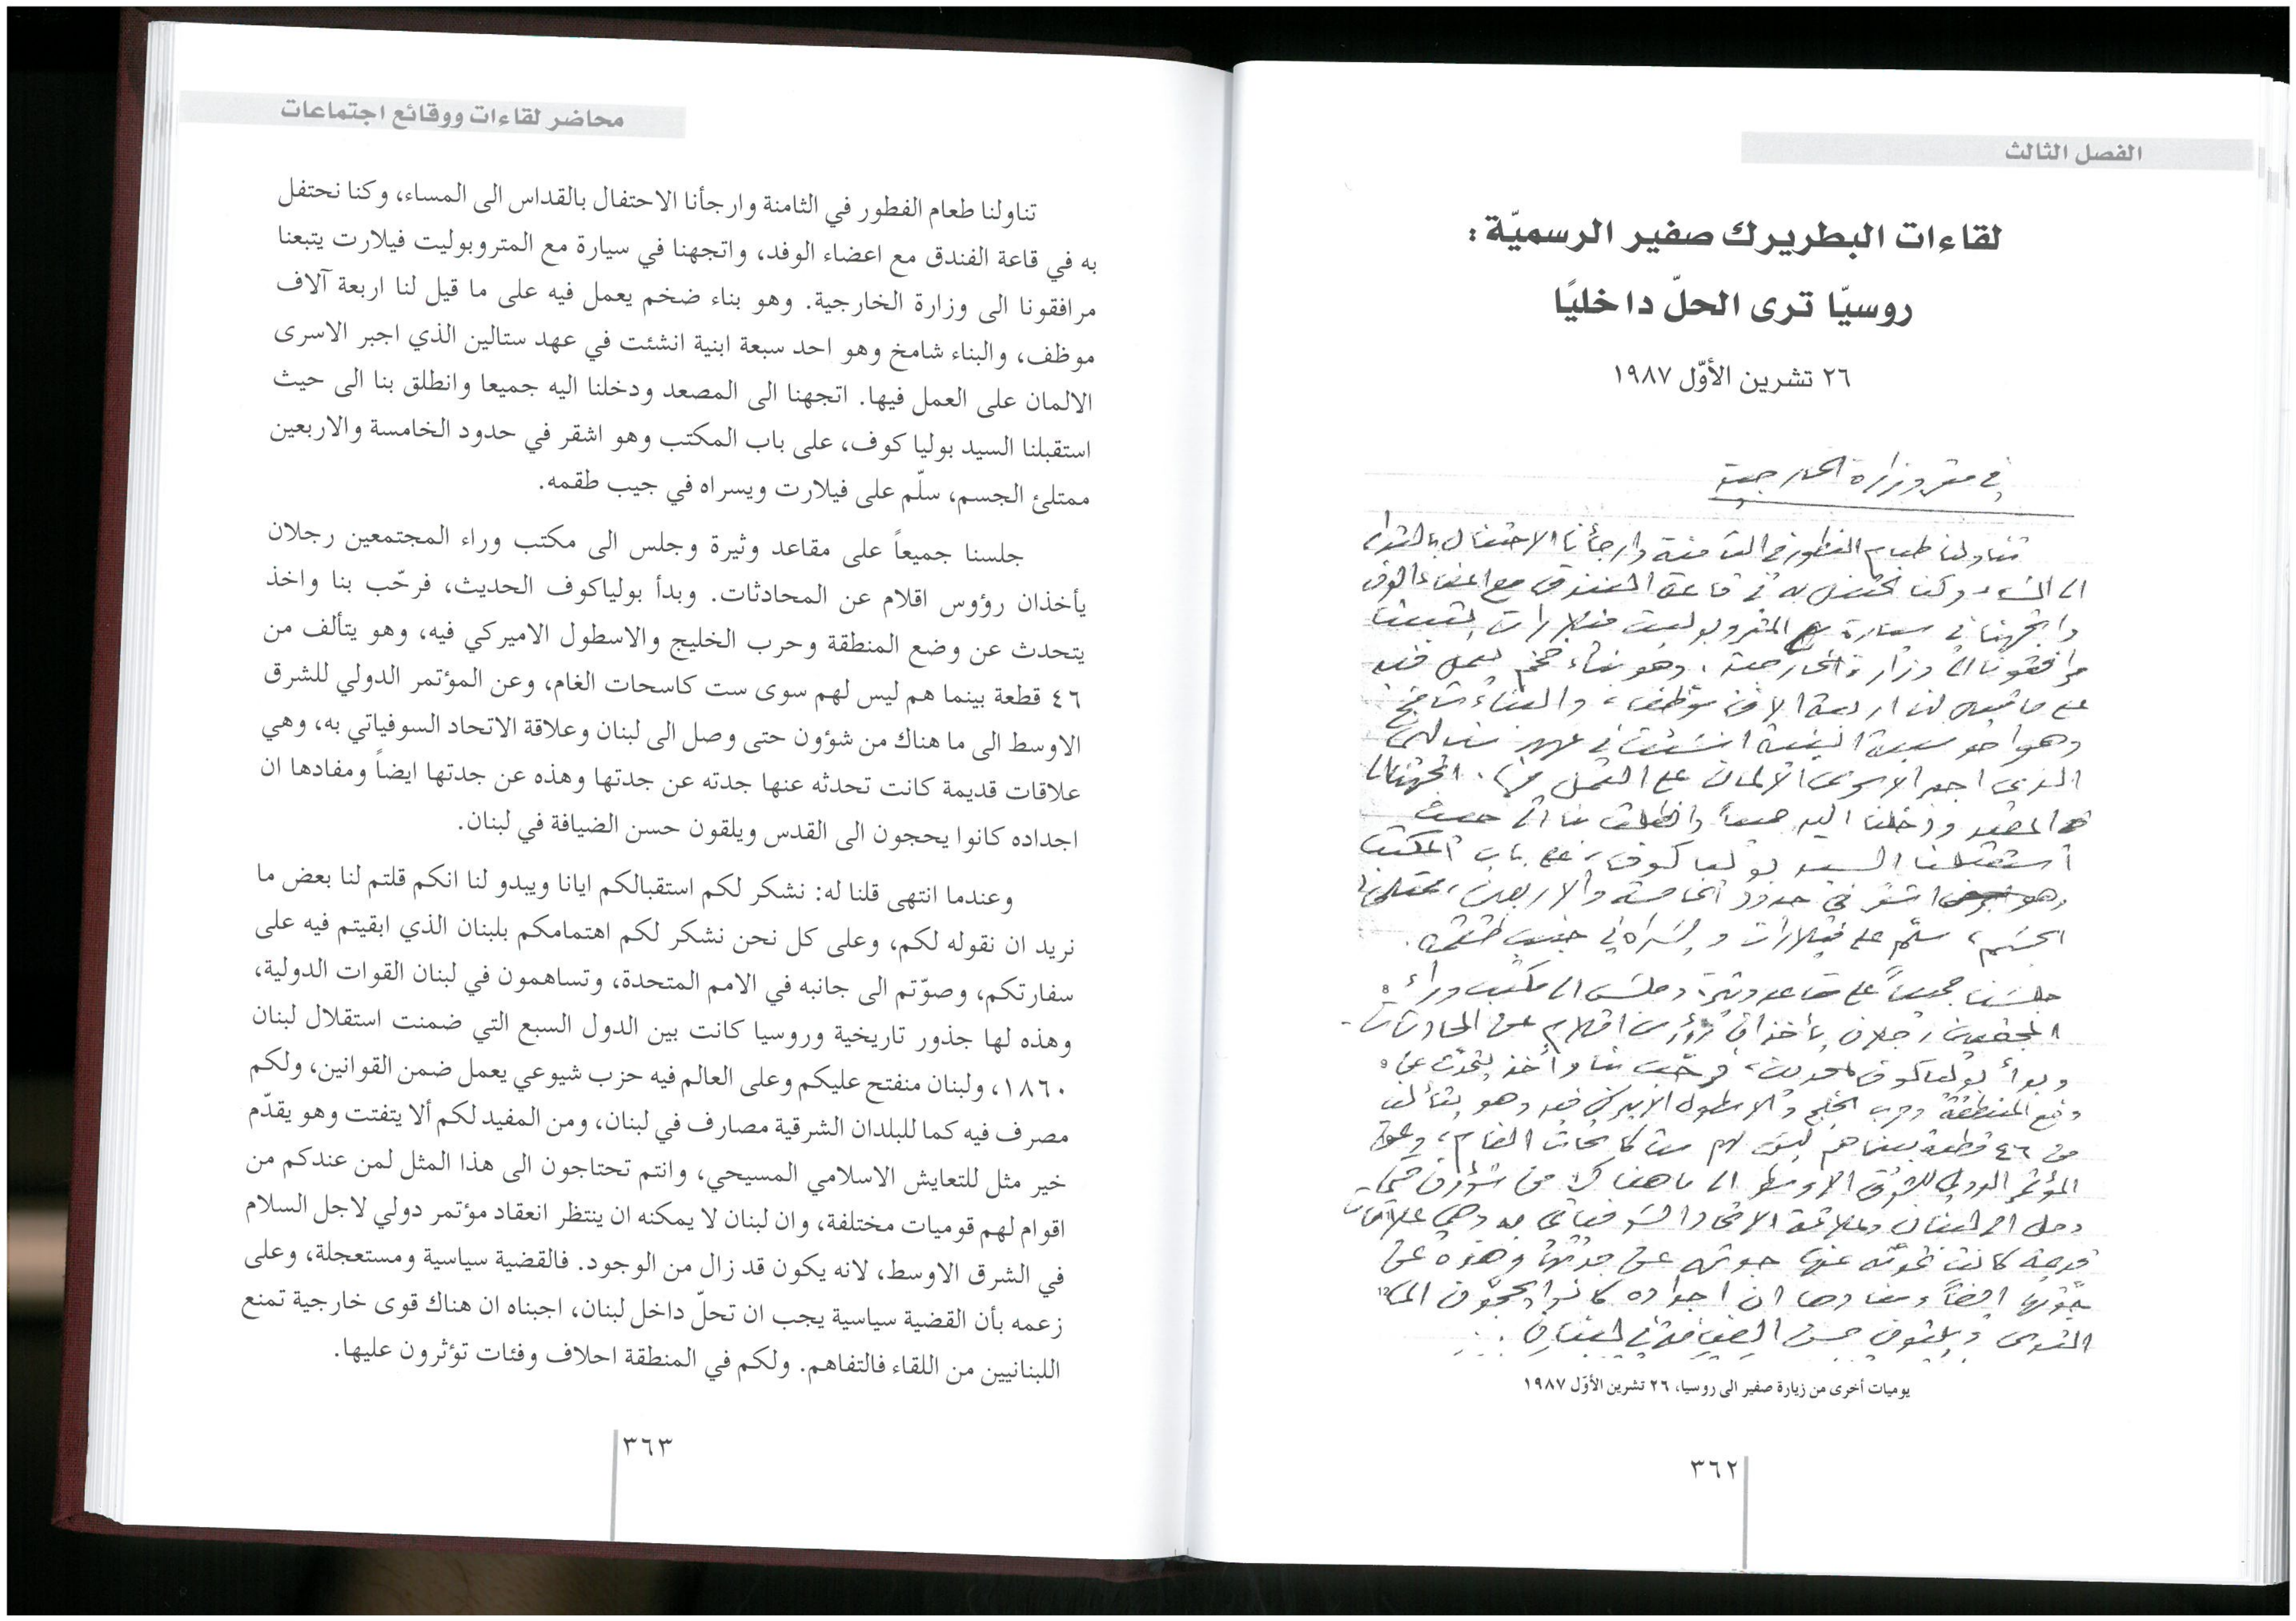 الفصل الثالث
لقاءات البطريرك صفير الرسميّة:
روسيّا ترى الحلّ داخليًا
٢٦ تشرين الأوّل ١٩٨٧
في مقر وزارة الخارجية
تناولنا طعام الفطور في الثامنة وارجأنا الاحتفال بالقداس
الى المساء وكنا نحتفل به في قاعة الفندق مع اعضاء الوفد
واتجهنا في سيارة مع المتروبوليت فيلارت يتبعنا
مرافقونا الى وزارة الخارجية. وهو بناء ضخم يعمل فيه
على ما قيل لنا اربعة الاف موظف، والبناء شامخ
وهو احد سبعة ابنية انشئت في عهد ستالين
الذي اجبر الاسرى الالمان على العمل فيها. اتجهنا الى
المصعد ودخلنا اليه جميعاً وانطلق بنا الى حيث
استقبلنا السيد بولياكوف، على باب المكتب
وهو اشقر في حدود الخامسة والاربعين، ممتلئ
الجسم، سلّم على فيلارت ويسراه في جيب طقمه.
جلسنا جميعاً على مقاعد وثيرة وجلس الى مكتب وراء
المجتمعين رجلان يأخذان رؤوس اقلام عن المحادثات.
وبدأ بولياكوف الحديث، فرحّب بنا واخذ يتحدّث عن
وضع المنطقة وحرب الخليج والاسطول الاميركي فيه وهو يتألف
من ٤٦ قطعة بينما هم ليس لهم ست كاسحات الغام، وعن
المؤتمر الدولي للشرق الاوسط الى ما هناك من شؤون حتى
وصل الى لبنان وعلاقة الاتحاد السوفياتي به وهي علاقات
قديمة كانت تحدثه عنها جدته عن جدتها وهذه عن
جدّتها ايضاً ومفادها ان اجداده كانوا يحجّون الى
القدس ويلقون حسن الضيافة في لبنان.
يوميات أخرى من زيارة صفير الى روسيا، ٢٦ تشرين الأوّل ١٩٨٧
٣٦٢
محاضر لقاءات ووقائع اجتماعات
تناولنا طعام الفطور في الثامنة وارجأنا الاحتفال بالقداس الى المساء، وكنا نحتفل
به في قاعة الفندق مع اعضاء الوفد، واتجهنا في سيارة مع المتروبوليت فيلارت يتبعنا
مرافقونا الى وزارة الخارجية. وهو بناء ضخم يعمل فيه على ما قيل لنا اربعة آلاف
موظف، والبناء شامخ وهو احد سبعة ابنية انشئت في عهد ستالين الذي اجبر الاسرى
الالمان على العمل فيها. اتجهنا الى المصعد ودخلنا اليه جميعا وانطلق بنا الى حيث
استقبلنا السيد بوليا كوف، على باب المكتب وهو اشقر في حدود الخامسة والاربعين
ممتلئ الجسم، سلّم على فيلارت ويسراه في جيب طقمه.
جلسنا جميعاً على مقاعد وثيرة وجلس الى مكتب وراء المجتمعين رجلان
يأخذان رؤوس اقلام عن المحادثات. وبدأ بولياكوف الحديث، فرحّب بنا واخذ
يتحدث عن وضع المنطقة وحرب الخليج والاسطول الاميركي فيه، وهو يتألف من
٤٦ قطعة بينما هم ليس لهم سوى ست كاسحات الغام، وعن المؤتمر الدولي للشرق
الاوسط الى ما هناك من شؤون حتى وصل الى لبنان وعلاقة الاتحاد السوفياتي به، وهي
علاقات قديمة كانت تحدثه عنها جدته عن جدتها وهذه عن جدتها ايضاً ومفادها ان
اجداده كانوا يحجون الى القدس ويلقون حسن الضيافة في لبنان.
وعندما انتهى قلنا له: نشكر لكم استقبالكم ايانا ويبدو لنا انكم قلتم لنا بعض ما
نريد ان نقوله لكم، وعلى كل نحن نشكر لكم اهتمامكم بلبنان الذي ابقيتم فيه على
سفارتكم، وصوّتم الى جانبه في الامم المتحدة، وتساهمون في لبنان القوات الدولية،
وهذه لها جذور تاريخية وروسيا كانت بين الدول السبع التي ضمنت استقلال لبنان
١٨٦٠، ولبنان منفتح عليكم وعلى العالم فيه حزب شيوعي يعمل ضمن القوانين، ولكم
مصرف فيه كما للبلدان الشرقية مصارف في لبنان، ومن المفيد لكم ألا يتفتت وهو يقدّم
خير مثل للتعايش الاسلامي المسيحي، وانتم تحتاجون الى هذا المثل لمن عندكم من
اقوام لهم قوميات مختلفة، وان لبنان لا يمكنه ان ينتظر انعقاد مؤتمر دولي لاجل السلام
في الشرق الاوسط، لانه يكون قد زال من الوجود. فالقضية سياسية ومستعجلة، وعلى
زعمه بأن القضية سياسية يجب ان تحلّ داخل لبنان، اجبناه ان هناك قوى خارجية تمنع
اللبنانيين من اللقاء فالتفاهم. ولكم في المنطقة احلاف وفئات تؤثرون عليها.
٣٦٣